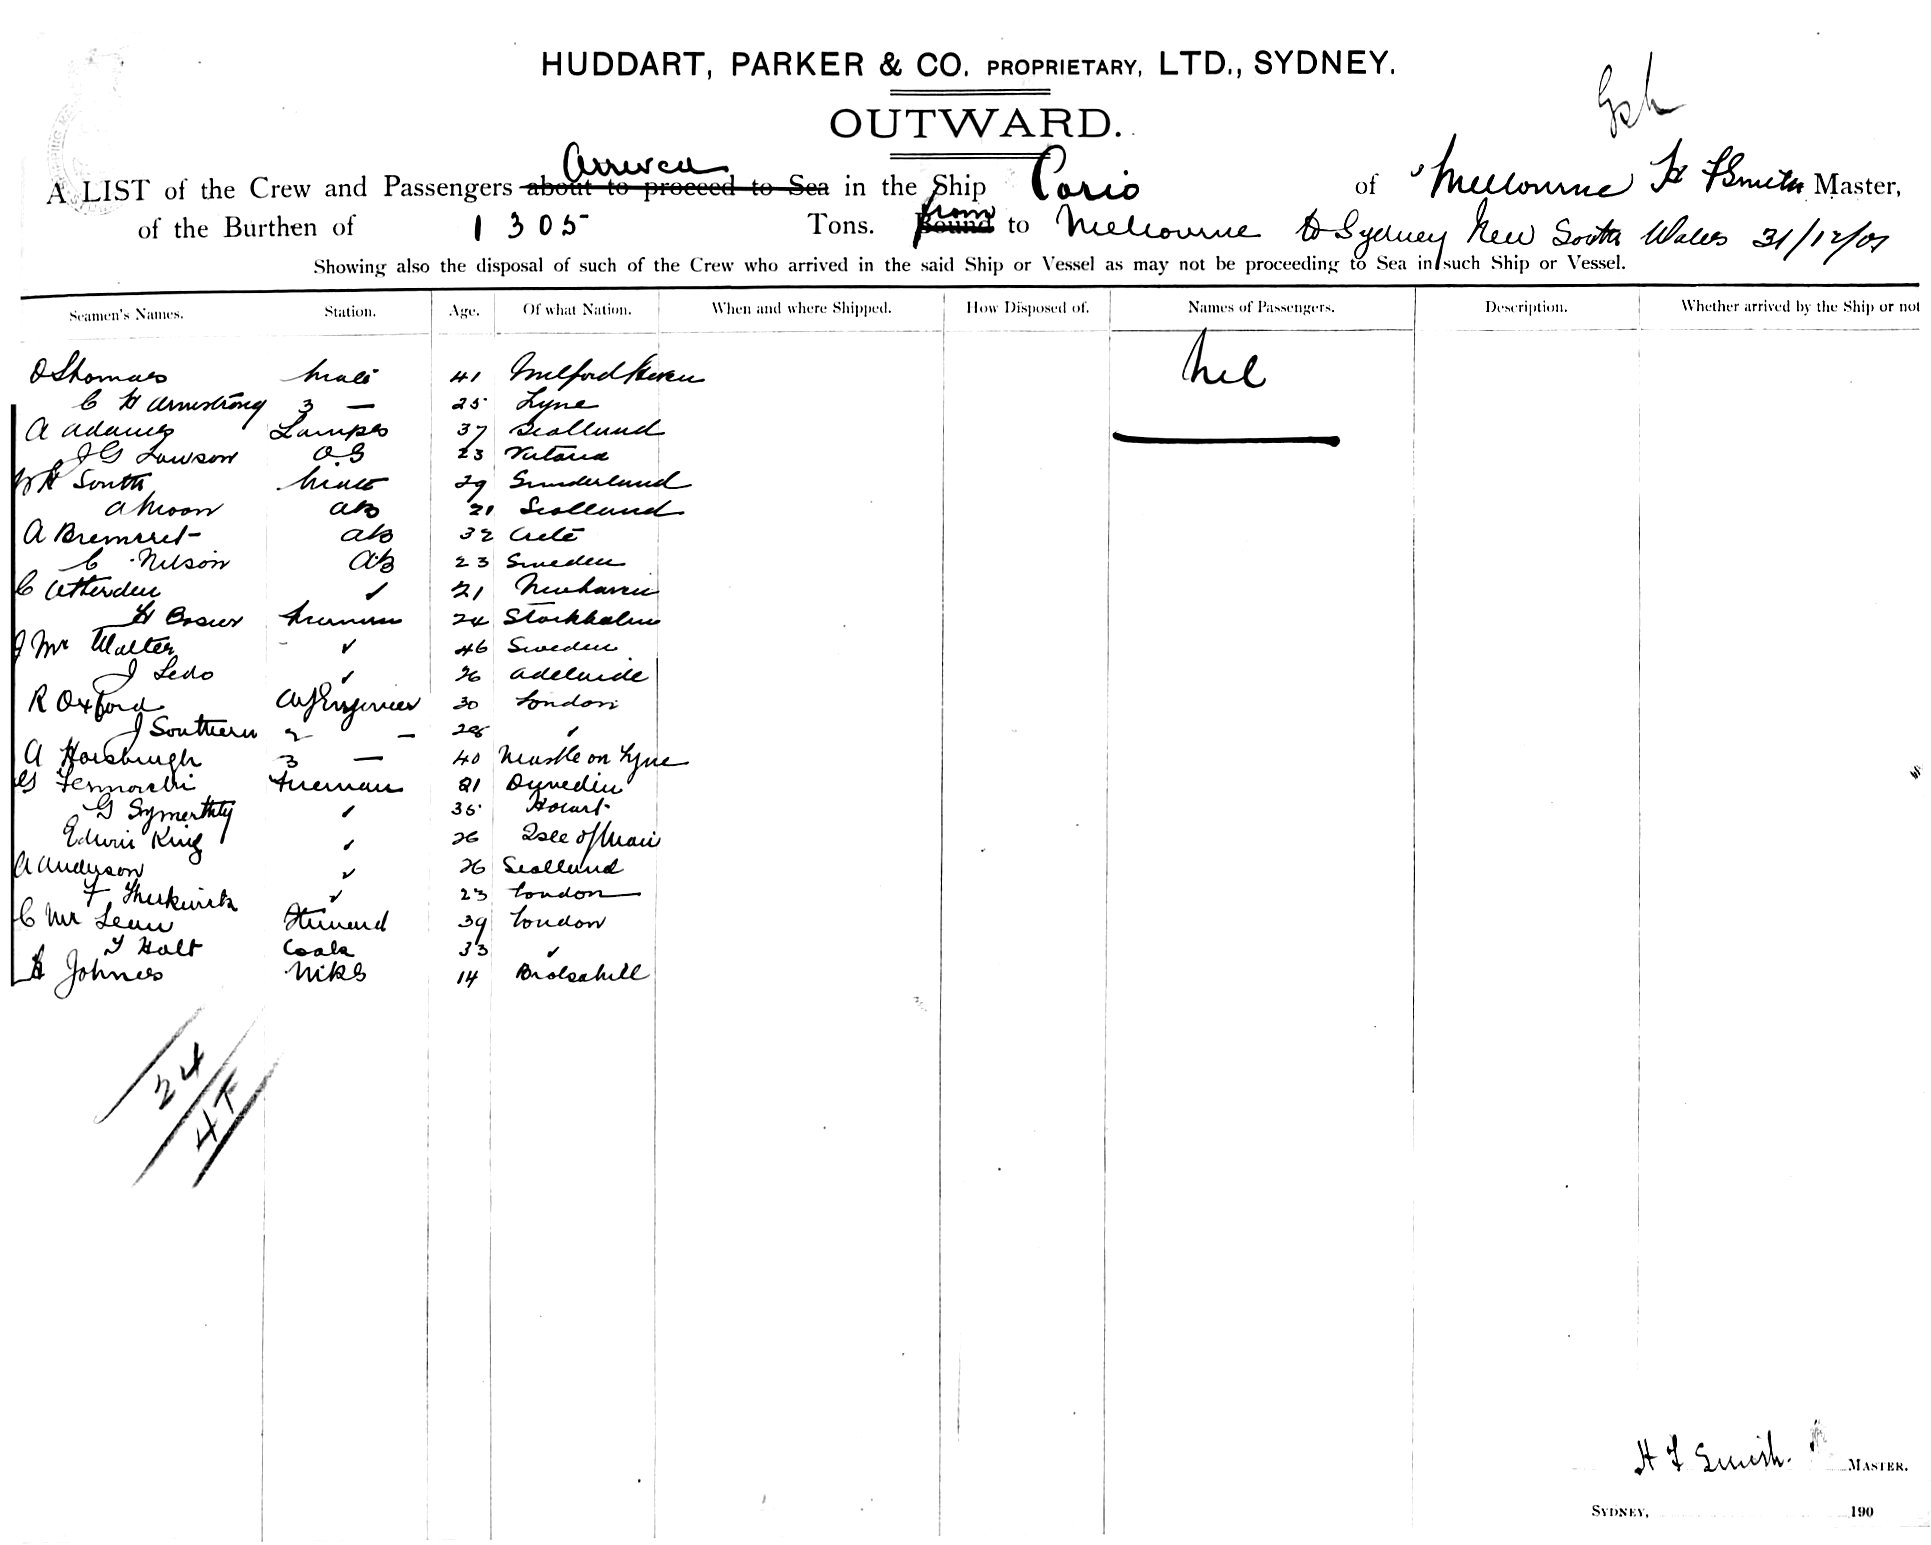 HUDDART, PARKER & CO. PROPRIETARY, LTD., SYDNEY.
OUTWARD.
Arrived
A LIST of the Crew and Passengers about to proceed to Sea in the Ship Corio of Melbourne H F Smith Master,
from
of the Burthen of 1305 Tons. Bound to Melbourne to Sydney New South Wales 31/12/01
Showing also the disposal of such of the Crew who arrived in the said Ship or Vessel as may not be proceeding to Sea in such Ship or Vessel.
Seamen's Names. Station. Age. Of what Nation. When and where Shipped. How Disposed of. Names of Passengers. Description. Whether arrived by the Ship or not
Nil
O Thomas Mate 41 Milford Haven
C H Armstrong 3 — 25 Tyne
A Adams Lamps 37 Scotland
J G Lawson O S 23
W H South 29 Sunderland
A Moon AB 21 Scotland
A AB 32 Crete
C Nilson AB 23 Sweden
C Atherden ✓ 21 Newhaven
H 24 Stockholm
J Mc Walter ✓ 46 Sweden
J Ledo ✓ 26 Adelaide
R Oxford Engineer 30 London
J Southern 2 — 28 ✓
A Horsburgh 3 — 40 on Tyne
G Fireman 21 Dunedin
G ✓ 35 Hobart
Edwin King ✓ 26 Isle of Man
A Anderson ✓ 26 Scotland
F ✓ 23 London
C Mc Lean Steward 39 London
T Holt Cook 33 ✓
H Johnes 14
24
4F
H F Smith. MASTER.
SYDNEY, 190